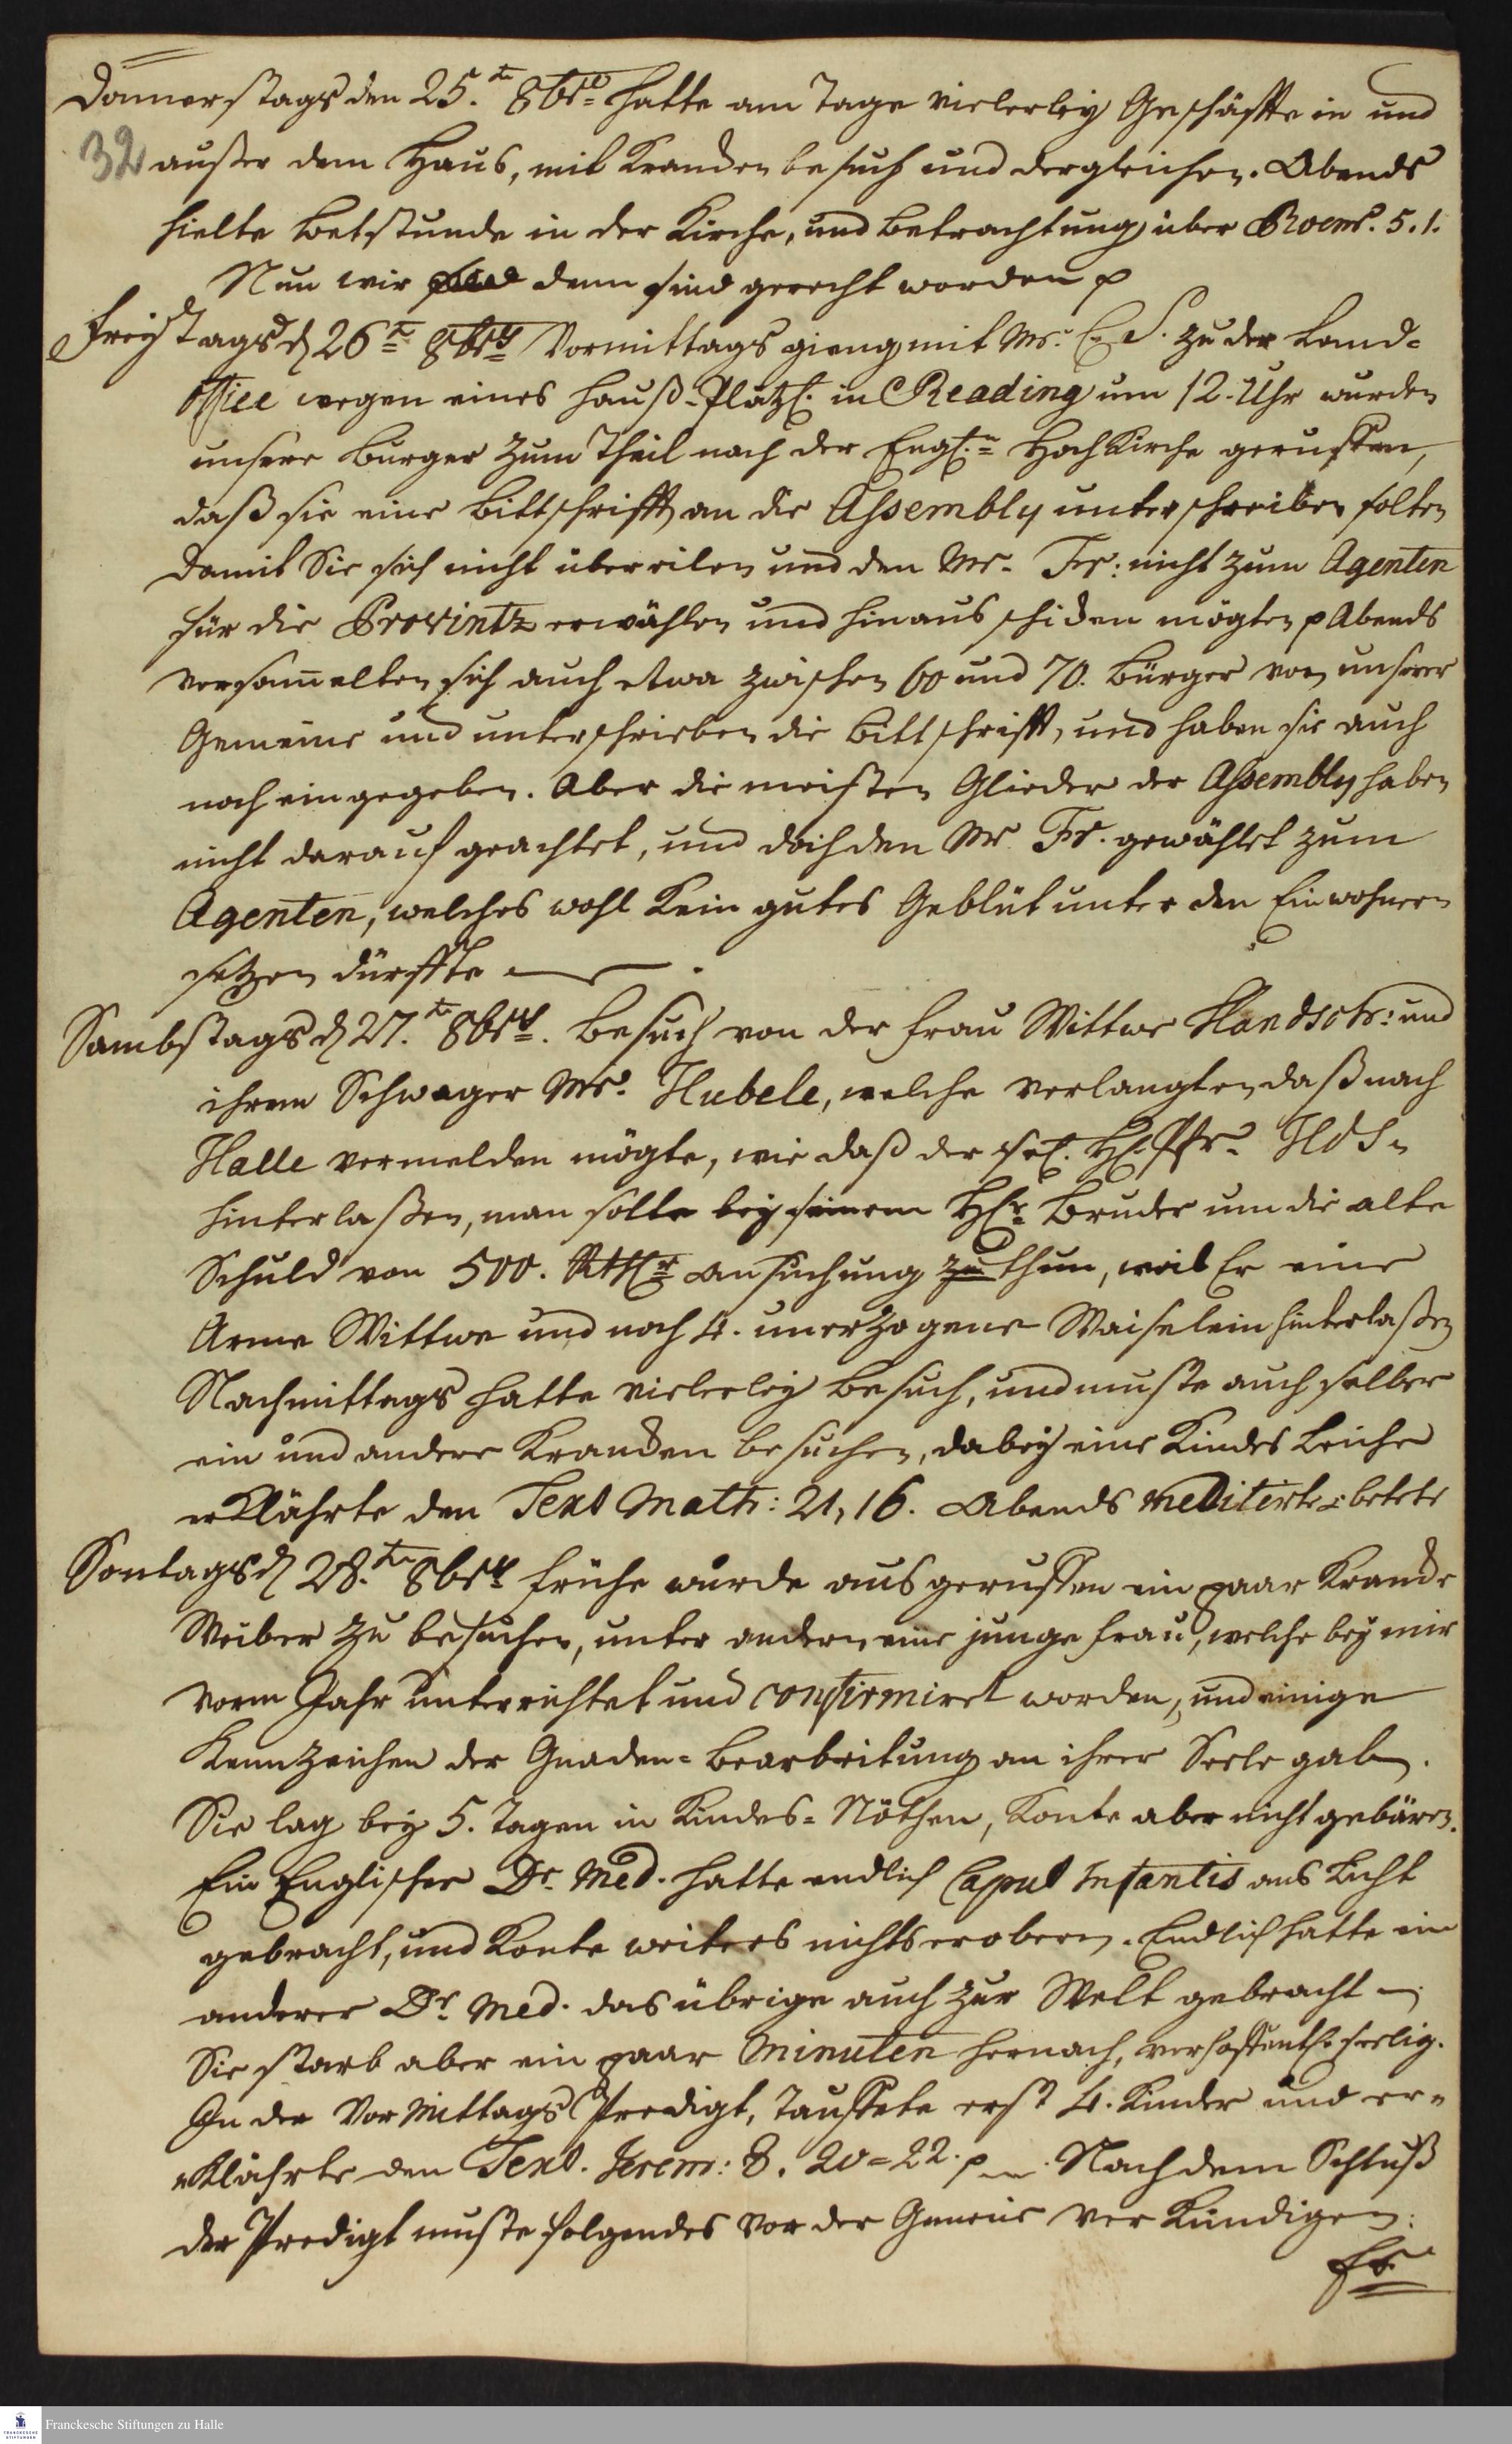 Donnerstags den 25.ten 8br: hatte am Tage vielerley Geschäffte in und
32 außer dem Haus, mit Krancken besuch und dergleichen. Abends
hielte Betstunde in der Kirche, und Betrachtung über Roem. 5. 1.
Nun wir denn sind gerecht worden p
Freytags d 26ten 8br: Vormittags gieng mit Mr. C. S. zu der Land-
office wegen eines Hauß-Platzes in Reading um 12. Uhr wurden
unsere Bürger zum Theil nach der Engl. HochKirche geruffen,
daß sie eine Bittschrifft an die Assembly unterschreiben solten
damit Sie sich nicht übereilen und den Mr. Fr: nicht zum Agenten
für die Provintz erwählen und hinaus schicken mögten p Abends
versam̄elten sich auch etwa zwischen 60 und 70. Bürger von unserer
Gemeine und unterschrieben die Bittschrifft, und haben sie auch
noch eingegeben. Aber die meisten Glieder der Assembly haben
nicht darauf geachtet, und doch den Mr. Fr. gewählet zum
Agenten, welches wohl kein gutes Geblüt unter den Einwohnern
setzen dürffte
Sambstags d 27.ten 8br. Besuch von der Frau Wittwe Handsch: und
ihrem Schwager Mr. Hubele, welche verlangten daß nach
Halle vermelden mögte, wie daß der sel. H. Pfr. Hds.
hinterlaßen, man solte bey seinem H. Bruder um die alte
Schuld von 500. Rthlr ansuchung zu thun, weil Er eine
Arme Wittwe und noch 4. unerzogene Waiselein hinterlaßen
Nachmittags hatte vielerley Besuch, und muste auch selber
ein und andere Krancken besuchen, dabey eine Kindes Leiche
erklährte den Text Math: 21, 16. Abends meditirte betete
Sontags d 28.ten 8br frühe wurde aus geruffen ein paar Krancke
Weiber zu besuchen, unter andern eine junge Frau, welche bey mir
vorm Jahr unterrichtet und confirmiret worden, und einige
Kennzeichen der Gnaden-Bearbeitung an ihrer Seele gab.
Sie lag bey 5. Tagen in Kindes-Nöthen, konte aber nicht gebären.
Ein Englischer Dr. Med. hatte endlich Caput Infantis ans Licht
gebracht, und konte weiters nichts erobern. Endlich hatte ein
anderer Dr. Med. das übrige auch zur Welt gebracht
Sie starb aber ein paar Minuten hernach, verhoffentl. seelig.
In der Vormittags Predigt, tauffete erst 4. Kinder und er-
erklährte den Text. Jerem: 8. 20=22. p Nach dem Schluß
der Predigt muste folgendes vor der Gemeine verkündigen:
Franckesche Stiftungen zu Halle